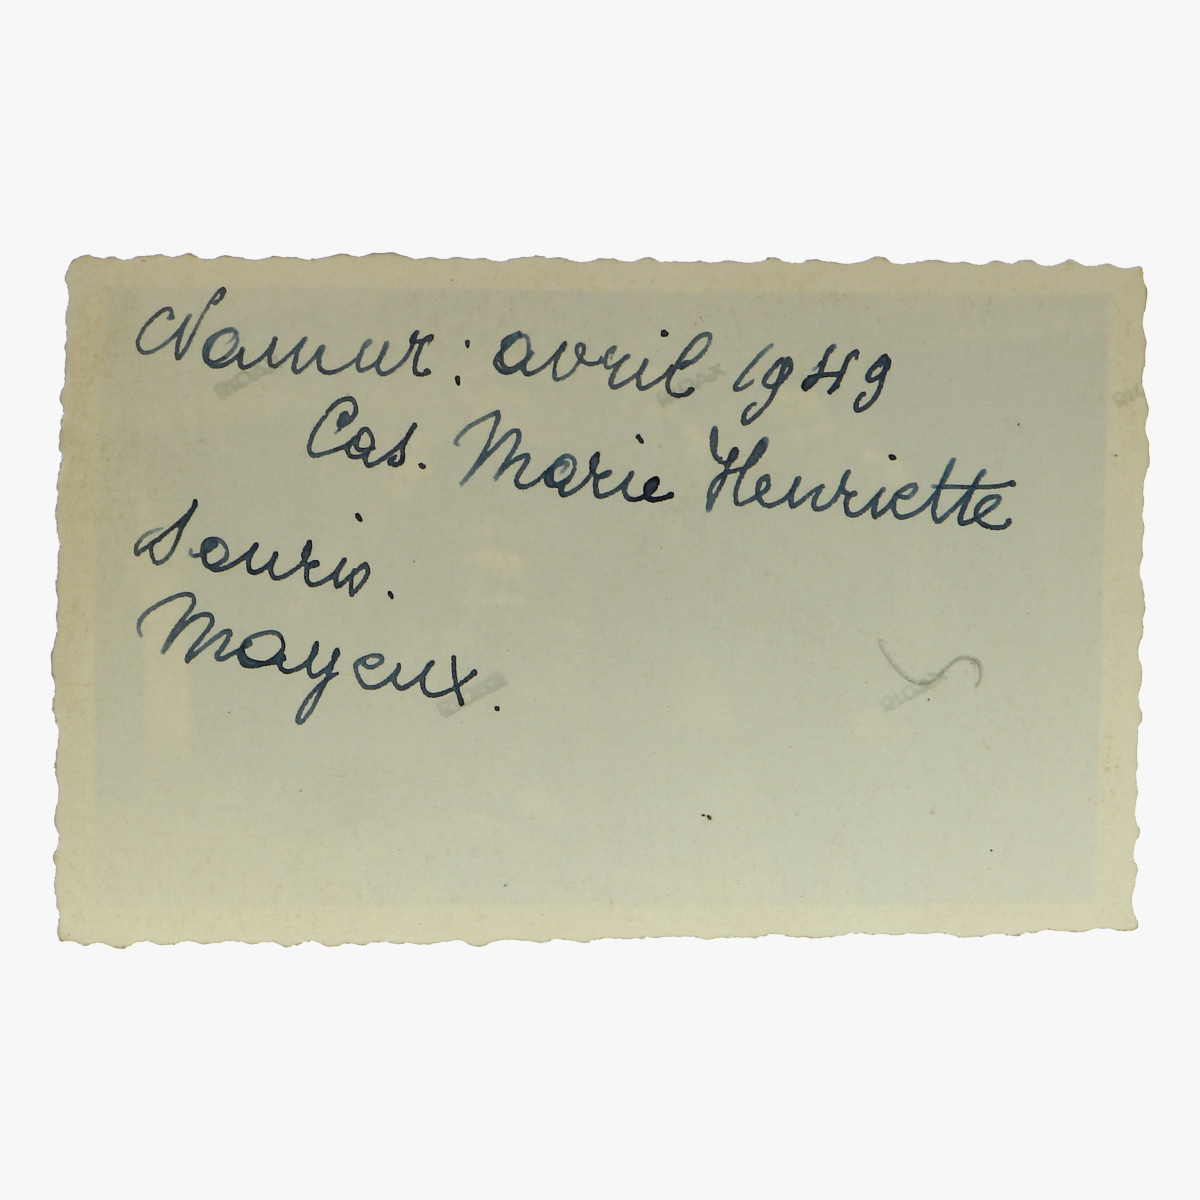 Namur : avril 1949
Cas. Marie Henriette
Souris.
Mayeux.